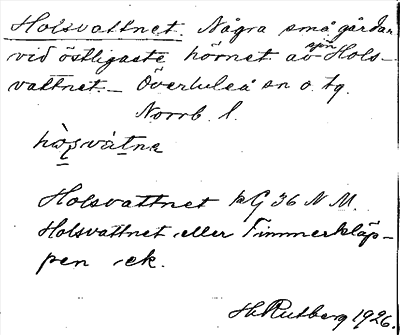 Holsvattnet. Några små gårdar
vid östligaste hörnet av sjön Hols-
vattnet. – Överluleå sn o. tg.
Norrb. l.
Holsvattnet kG 36 N M.
Holsvattnet eller Timmerkläp-
pen ek.
H. Rutberg 1926.